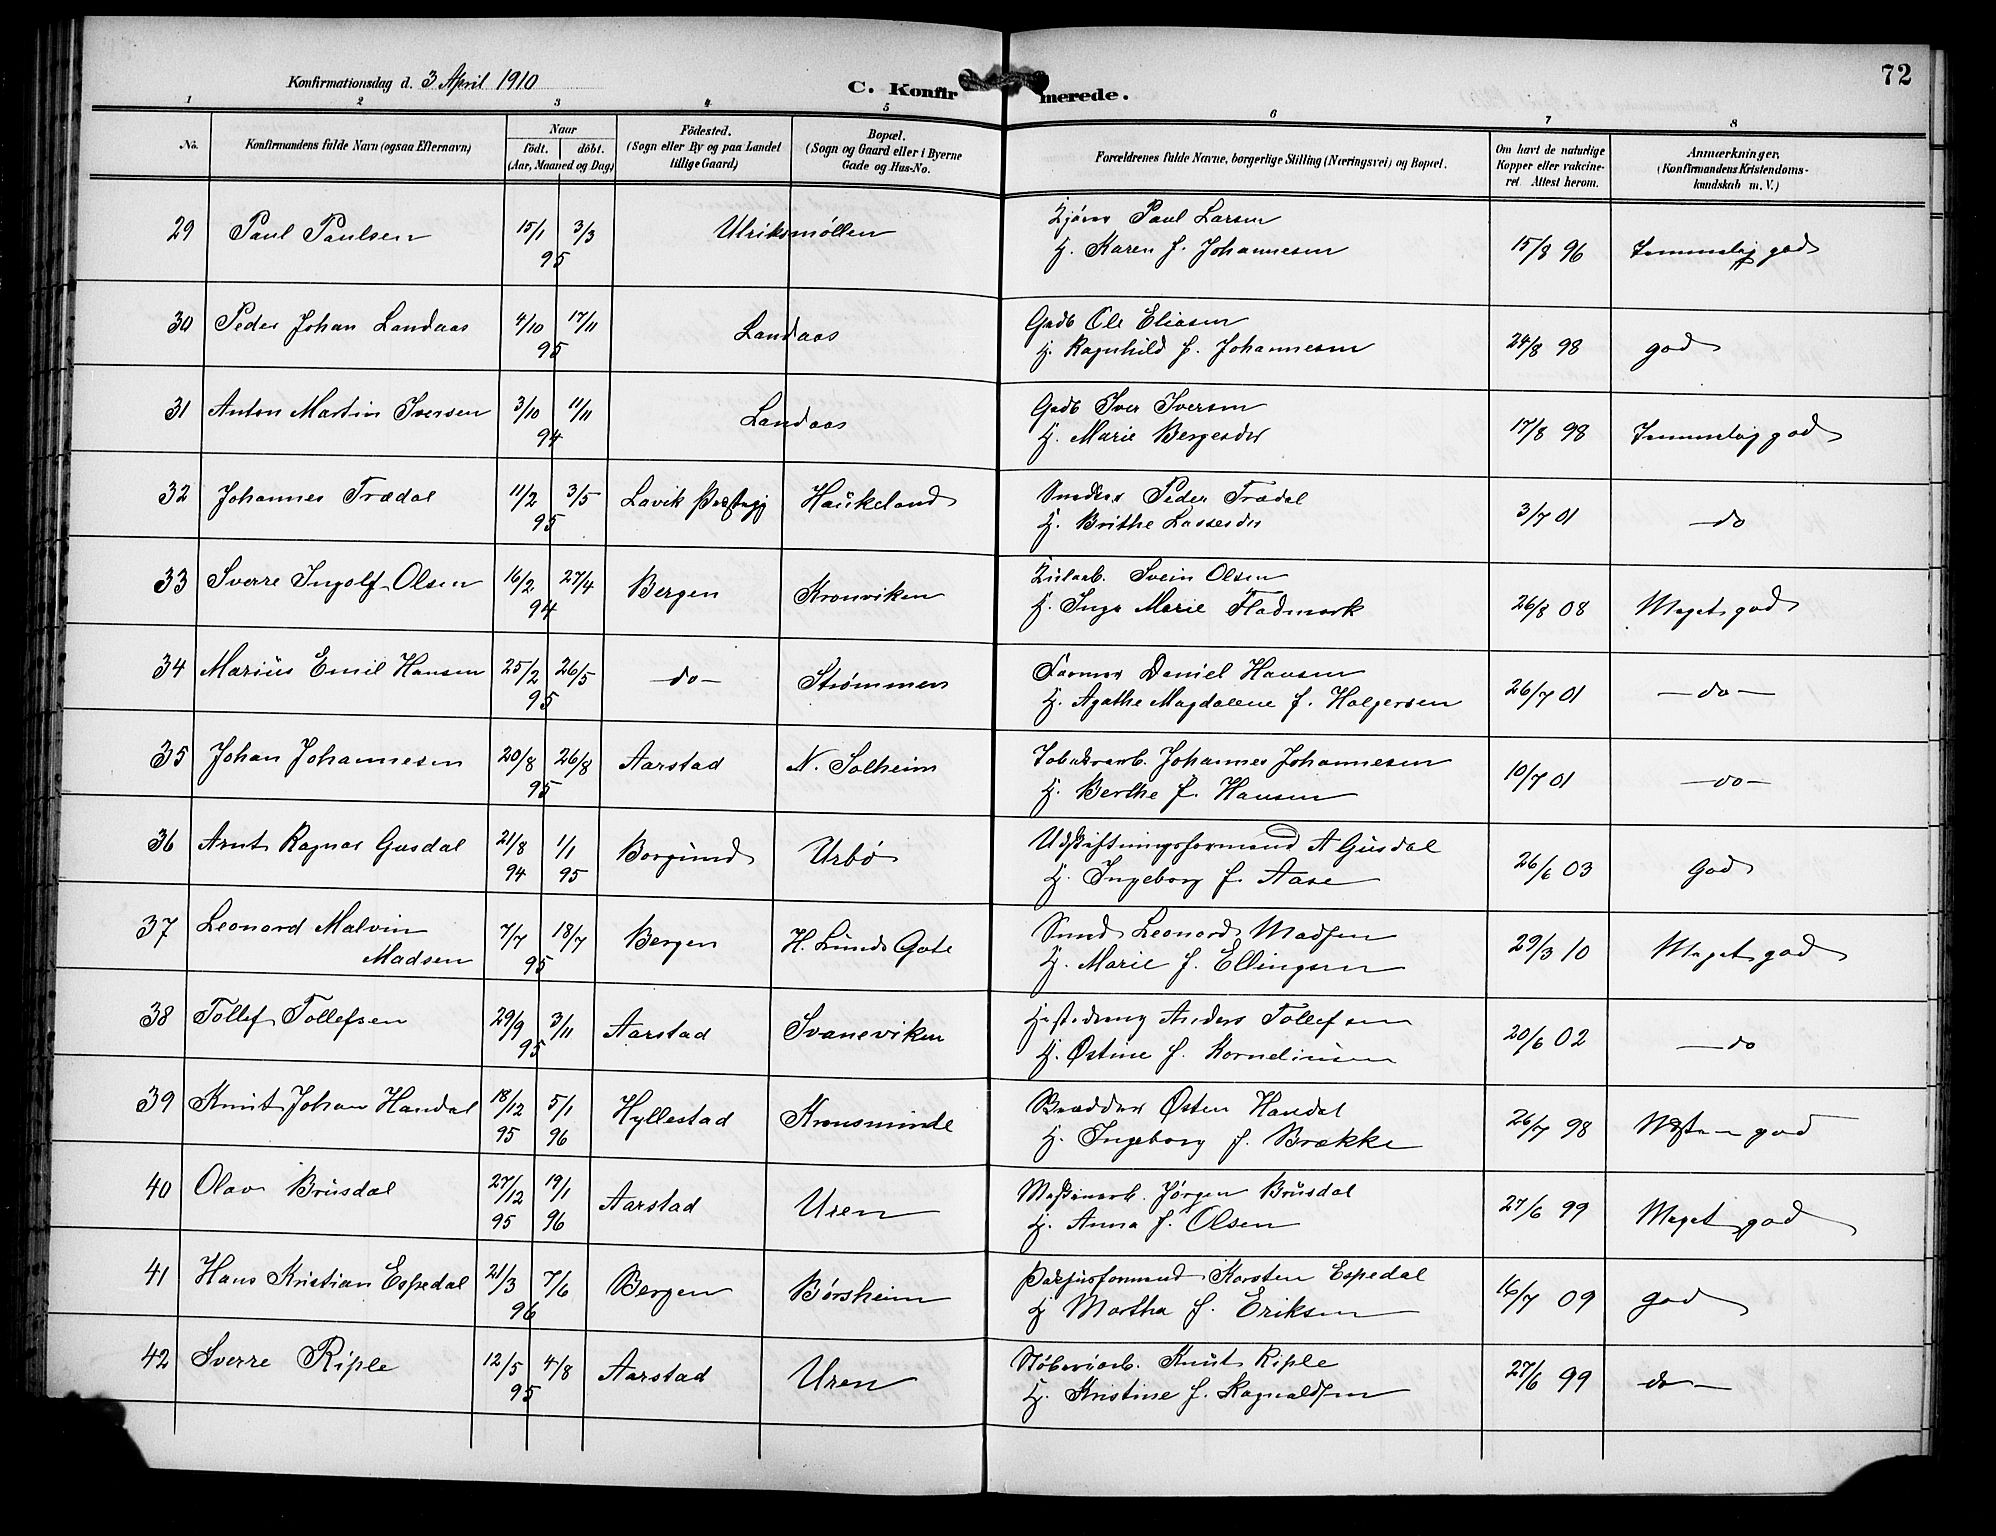 72
Konfirmationsdag d. 3 April 1910
C. Konfirmerede.
1 2 3 4 5 6 7 8
No. Konfirmandens fulde Navn (ogsaa Efternavn) Naar født. døbt. (Aar, Maaned og Dag) Födested. (Sogn eller By og paa Landet tillige Gaard) Bopæl. (Sogn og Gaard eller i Byerne Gade og Hus-No. Forældrenes fulde Navne, borgerlige Stilling (Næringsvei) og Bopæl. Om havt de naturlige Kopper eller vakcineret Attest herom. Anmærkninger. (Konfirmandens Kristendomskundskab m. V.)
29 Paul Paulsen 15/1 3/3 95 Ulriksmøllen Kjører Paul Larsen
H. Karen f. Johannesen 15/8 96 Temmelig god
30 Peder Johan Landaas 4/10 17/11 95 Landaas Gadb Ole Eliasen
H. Ragnhild f. Johannesen 24/8 98 god
31 Anton Martin Iversen 3/10 11/11 94 Landaas Gadb Iver Iversen
H. Marie Bergesdr 17/8 98 Temmelig god
32 Johannes Trædal 11/2 3/5 95 Lavik Præstegj Haukeland Snedker Peder Trædal
H. Brithe Lassesdr 3/7 01 — do
33 Sverre Ingolf Olsen 16/2 27/4 94 Bergen Kronviken Svein Olsen
H. Inga Marie Fladmark 26/8 08 Meget god
34 Marius Emil Hansen 25/2 26/5 95 — do — Strømmen Daniel Hansen
H. Agathe Magdalene f. Holgersen 26/7 01 — do —
35 Johan Johannesen 20/8 26/8 95 Aarstad N. Solheim Tobaksarb. Johannes Johannesen
H. Berthe f. Hansen 10/7 01 — do —
36 Arnt Ragnar Gusdal 21/8 94 1/1 95 Borgund Urbø Udskiftningsformand A Gusdal
H. Ingeborg f. Aase 26/6 03 God
37 Leonard Malvin
Madsen 7/7 18/7 95 Bergen H. Lunds Gate Smed Leonard Madsen
H. Marie f. Ellingsen 29/3 10 Meget god
38 Tollef Tollefsen 29/9 3/11 95 Aarstad Svaneviken Anders Tollefsen
H. Østine f. Korneliusen 20/6 02 — do
39 Knut Johan Handal 18/12 95 5/1 96 Hyllestad Kronsminde Østen Handal
H. Ingeborg f. Brække 26/7 98 Næsten god
40 Olav Brusdal 27/12 95 19/1 96 Aarstad Uren Maskinarb. Jørgen Brusdal
H. Anna f. Olsen 27/6 99 Meget god
41 Hans Kristian Espedal 21/3 7/6 96 Bergen Børsheim Karsten Espedal
H Martha f. Eriksen 16/7 09 god
42 Sverre Riple 12/5 4/8 95 Aarstad Uren Støberiarb. Knut Riple
H. Kristine f. Ragnaldsen 27/6 99 do —